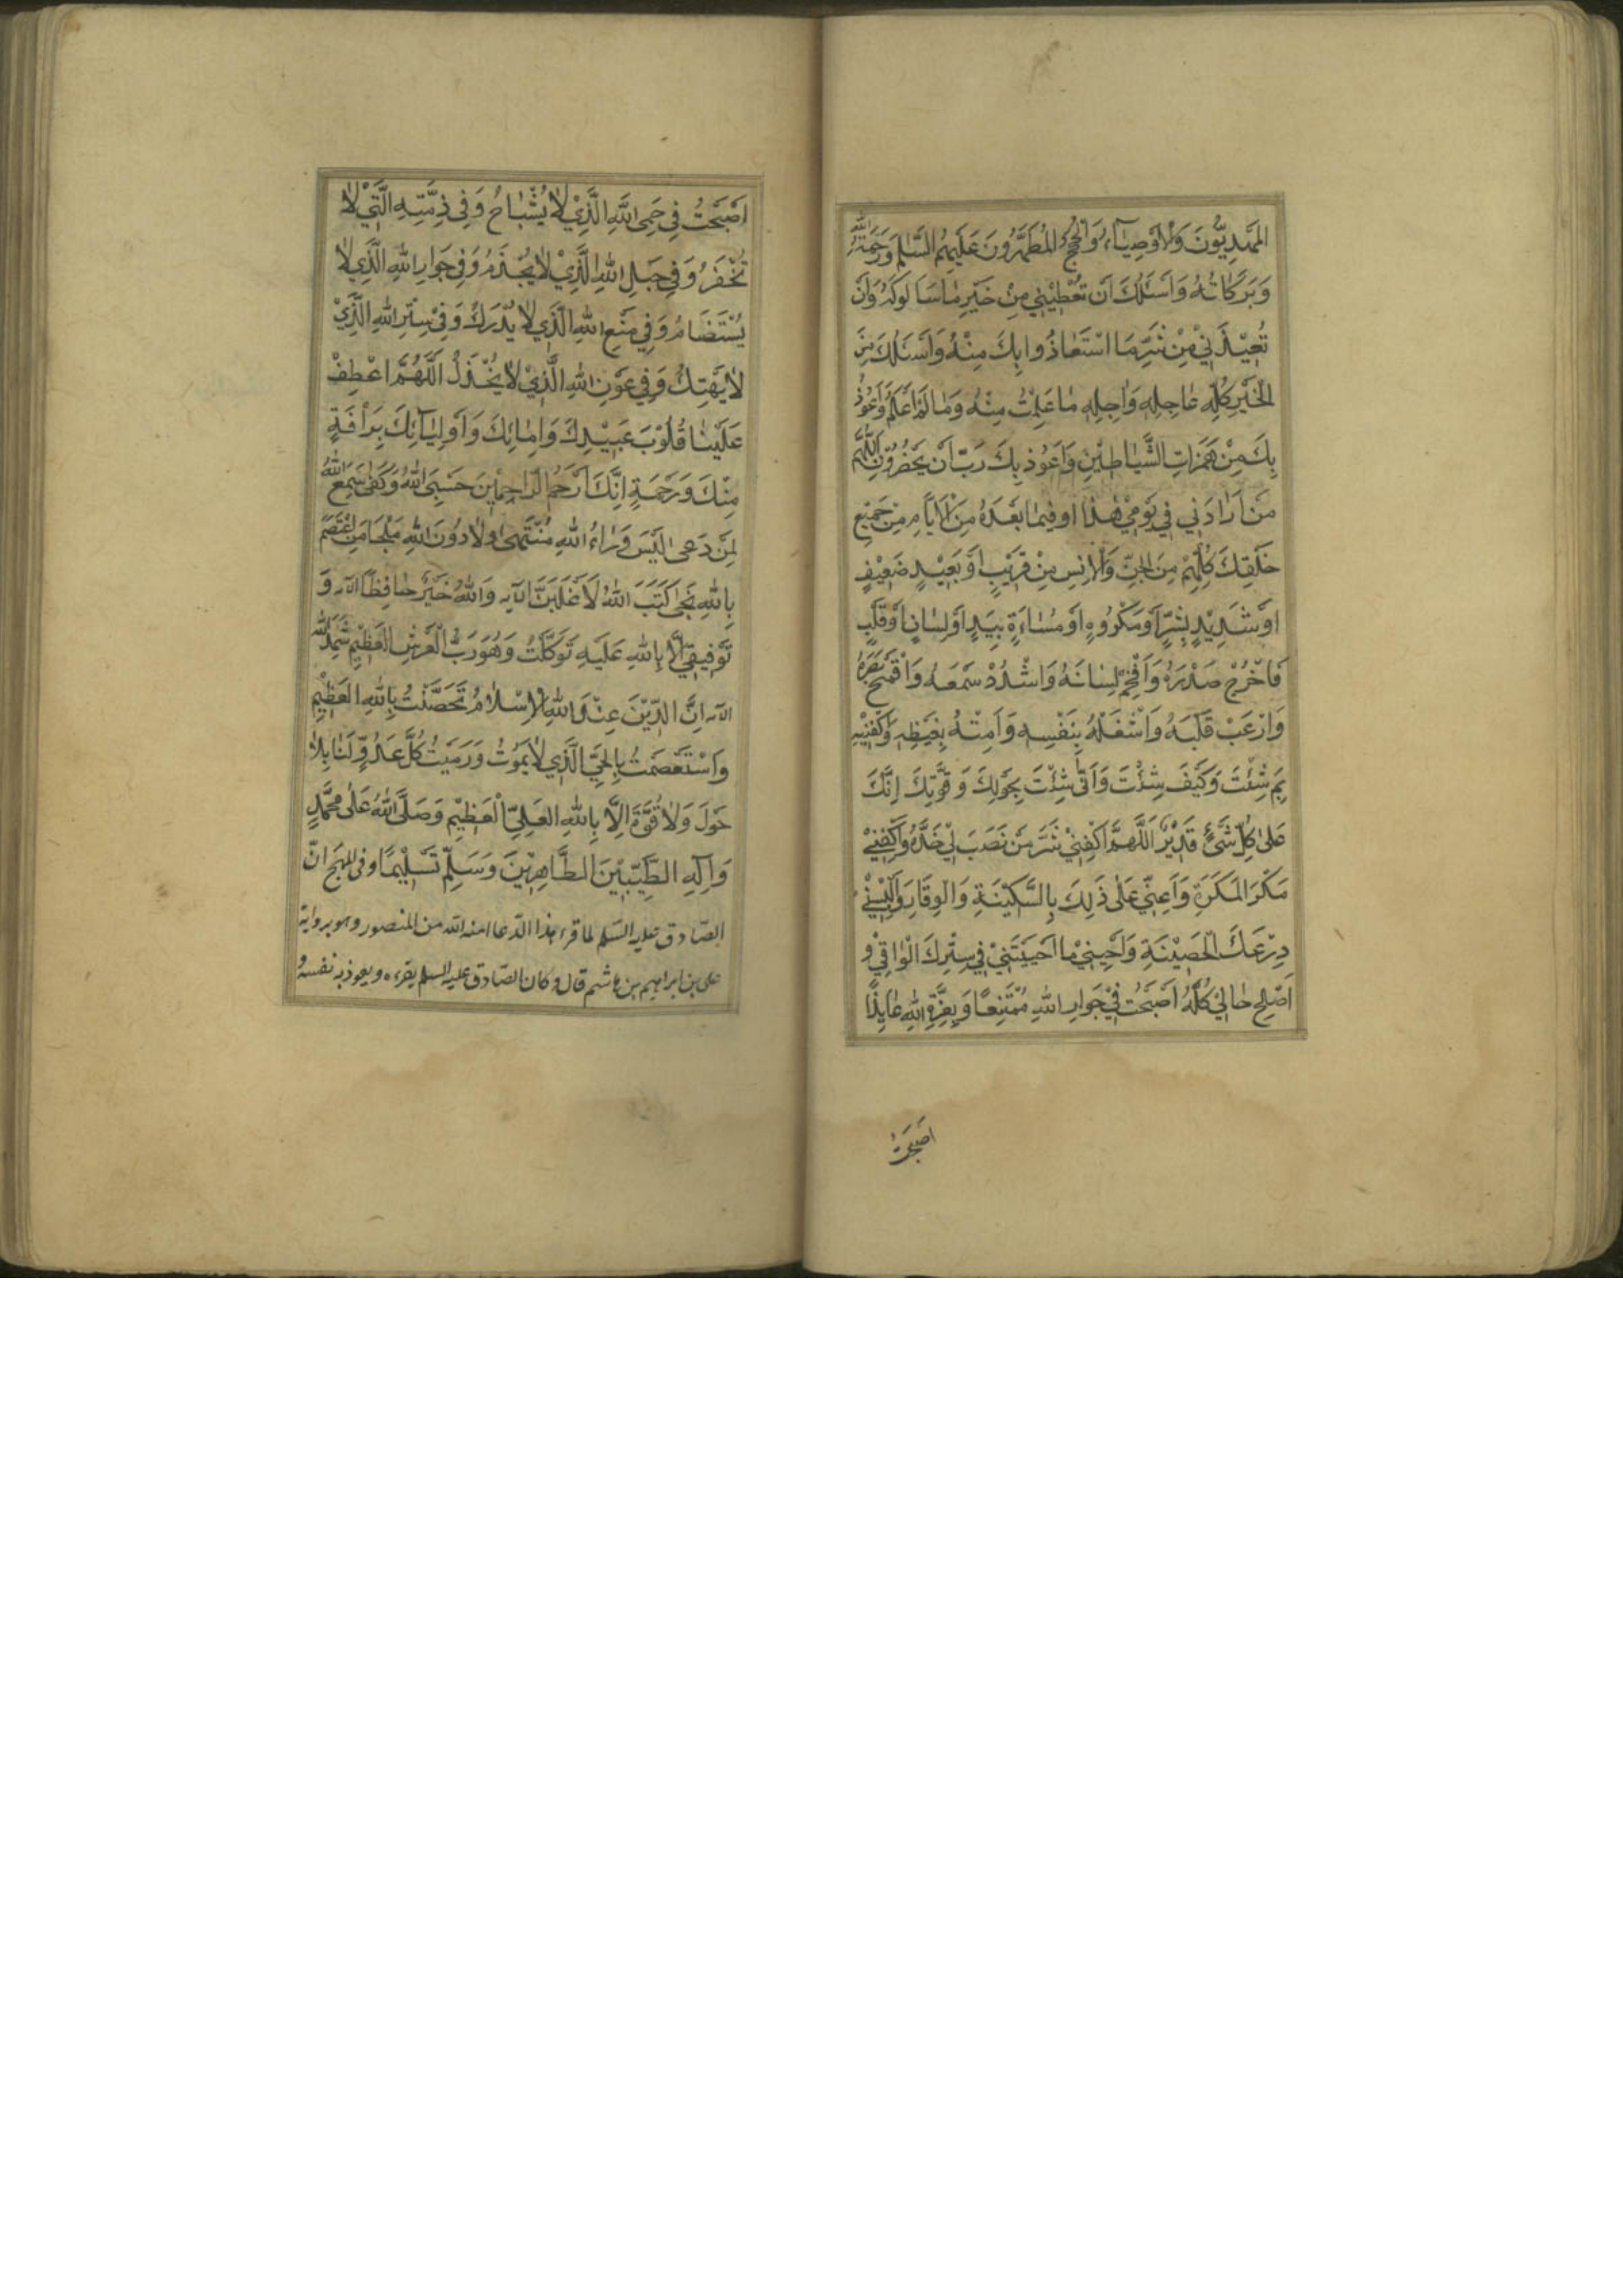 المَهْدِيُّونَ وَالْأَوْصِيَاءُ وَالْحُجَجُ المُطَهَّرُونَ عَلَيْهِمُ السَّلٰمُ وَرَحْمَةُ اللهِ
وَبَرَكَاتُهُ وَاَسْئَلُكَ اَنْ تُعْطِيَنِي مِنْ خَيْرِ مٰا سَالُوكَ وَاَنْ
تُعِيْذَنِيْ مِنْ شَرِّ مَا اسْتَعٰاذُوا بِكَ مِنْهُ وَاَسْئَلُكَ مِنَ
الْخَيْرِ كُلِّهِ عٰاجِلِهِ وَاٰجِلِهِ مٰا عَلِمْتُ مِنْهُ وَمٰا لَمْ اَعْلَمْ وَاَعُوْذُ
بِكَ مِنْ هَمَزَاتِ الشَّيٰاطِيْنِ وَاَعُوْذُ بِكَ رَبِّ اَنْ يَحْضُرُوْنِ اَللّٰهُمَّ
مَنْ اَرٰادَنِي فِي يَوْمِيْ هٰذٰا اَوْ فِيمٰا بَعْدَهُ مِنَ الْاَيّٰامِ مِنْ جَمِيْعِ
خَلْقِكَ كُلِّهِمْ مِنَ الْجِنِّ وَالْاِنْسِ مِنْ قَرِيْبٍ اَوْ بَعِيْدٍ ضَعِيْفٍ
اَوْ شَدِيْدٍ بِشَرٍّ اَوْ مَكْرُوهٍ اَوْ مَسٰاءَةٍ بِيَدٍ اَوْ لِسٰانٍ اَوْ قَلْبٍ
فَاَخْرِجْ صَدْرَهُ وَاَفْحِمْ لِسٰانَهُ وَاشْدُدْ سَمْعَهُ وَاقْمَحْ بَصَرَهُ
وَارْعَبْ قَلْبَهُ وَاشْغَلْهُ بِنَفْسِهِ وَاَمِتْهُ بِغَيْظِهِ وَاكْفِنِيْهِ
بِمَ شِئْتَ وَكَيْفَ شِئْتَ وَاَنّٰى شِئْتَ بِحَوْلِكَ وَقُوَّتِكَ اِنَّكَ
عَلىٰ كُلِّ شَيْئٍ قَدِيْرٌ اَللّٰهُمَّ اكْفِنِيْ شَرَّ مَنْ نَصَبَ لِيْ حَدَّهُ وَاكْفِنِيْ
مَكْرَ الْمَكَرَةِ وَاَعِنِّي عَلىٰ ذٰلِكَ بِالسَّكِيْنَةِ وَالْوِقَارِ وَاَلْبِسْنِيْ
دِرْعَكَ الْحَصِيْنَةِ وَاَحْيِنِيْ مٰا اَحْيَيْتَنِيْ فِي سِتْرِكَ الْوٰاقِيْ وَ
اَصْلِحْ حٰالِيْ كُلَّهُ اَصْبَحْتُ فِيْ جَوٰارِ اللهِ مُمْتَنِعًا وَبِعِزَّةِ اللهِ عٰايِذًا
اَصْبَحْتُ
اَصْبَحْتُ فِي حِمَى اللهِ الَّذِيْ لٰا يُسْتَبٰاحُ وَفِي ذِمَّتِهِ الَّتِيْ لٰا
تُخْفَرُ وَفِي حَبْلِ اللهِ الَّذِيْ لٰا يُجْذَمُ وَفِي جَوٰارِ اللهِ الَّذِي لٰا
يُسْتَضٰامُ وَفِي مَنْعِ اللهِ الَّذِي لٰا يُدْرَكُ وَفِيْ سِتْرِ اللهِ الَّذِيْ
لٰا يَهْتِكُ وَفِي عَوْنِ اللهِ الَّذِيْ لٰا يُخْذَلُ اَللّٰهُمَّ اعْطِفْ
عَلَيْنٰا قُلُوْبَ عَبِيْدِكَ وَاِمٰائِكَ وَاَوْلِيٰآئِكَ بِرَأْفَةٍ
مِنْكَ وَرَحْمَةٍ اِنَّكَ اَرْحَمُ الرّٰاحِمِيْنَ حَسْبِيَ اللهُ وَكَفٰى سَمِعَ اللهُ
لِمَنْ دَعٰى لَيْسَ وَرٰاءَ اللهِ مُنْتَهىٰ وَلٰا دُوْنَ اللهِ مَلْجَا مَنِ اعْتَصَمَ
بِاللهِ نَجٰى كَتَبَ اللهُ لَاَغْلِبَنَّ الآيه وَاللهُ خَيْرٌ حٰافِظًا الآيه وَ
تَوْفِيقِيْ اِلّٰا بِاللهِ عَلَيْهِ تَوَكَّلْتُ وَهُوَ رَبُّ الْعَرْشِ الْعَظِيْمِ شَهِدَ اللهُ
الآيه اِنَّ الدِّيْنَ عِنْدَ اللهِ الْاِسْلٰامُ تَحَصَّنْتُ بِاللهِ الْعَظِيْمِ
وَاسْتَعْصَمْتُ بِالْحَيِّ الَّذِي لٰا يَمُوْتُ وَرَمَيْتُ كُلَّ عَدُوٍّ لَنٰا بِلٰا
حَوْلَ وَلٰا قُوَّةَ اِلّٰا بِاللهِ الْعَلِيِّ الْعَظِيْمِ وَصَلَّى اللهُ عَلىٰ مُحَمَّدٍ
وَاٰلِهِ الطَّيِّبِيْنَ الطّٰاهِرِيْنَ وَسَلِّمْ تَسْلِيْمًا وفى المهج انّ
الصّادق عليه السّلم لما قرء هذا الدّعا امنه الله من المنصور وهو برواية
على بن ابراهيم بن هاشم قال وكان الصّادق عليه السلم يقرءه ويعوذ به نفسه